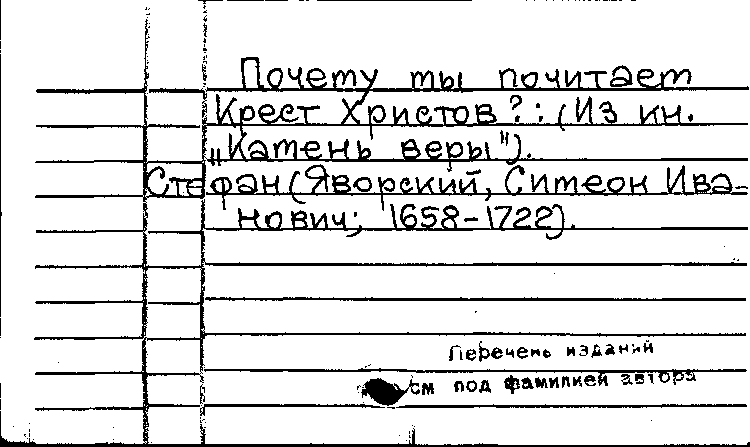 Почему мы почитаем
Крест Христов?: (Из кн.
„Камень веры").
Стефан (Яворский, Симеон Ива-
нович; 1658-1722).
Перечень изданий
см под фамилией автора